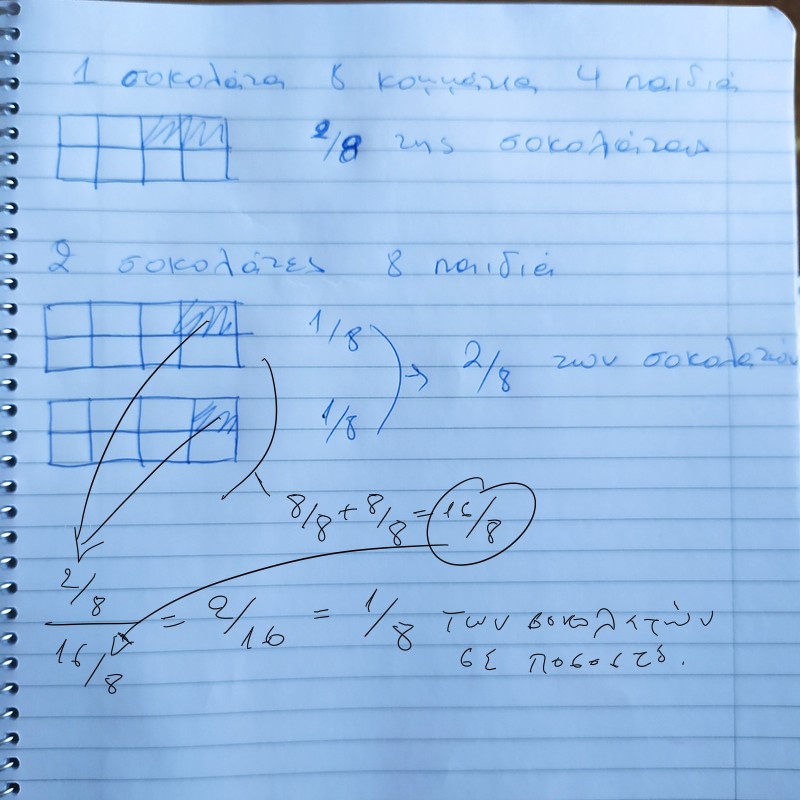 1 σοκολάτα 8 κομμάτια 4 παιδιά
2/8 της σοκολάτας
2 σοκολάτες 8 παιδιά
1/8
1/8
→ 2/8 των σοκολατών
8/8 + 8/8 = 16/8
2/8 / 16/8 = 2/16 = 1/8 των σοκολατών
σε ποσοστό.